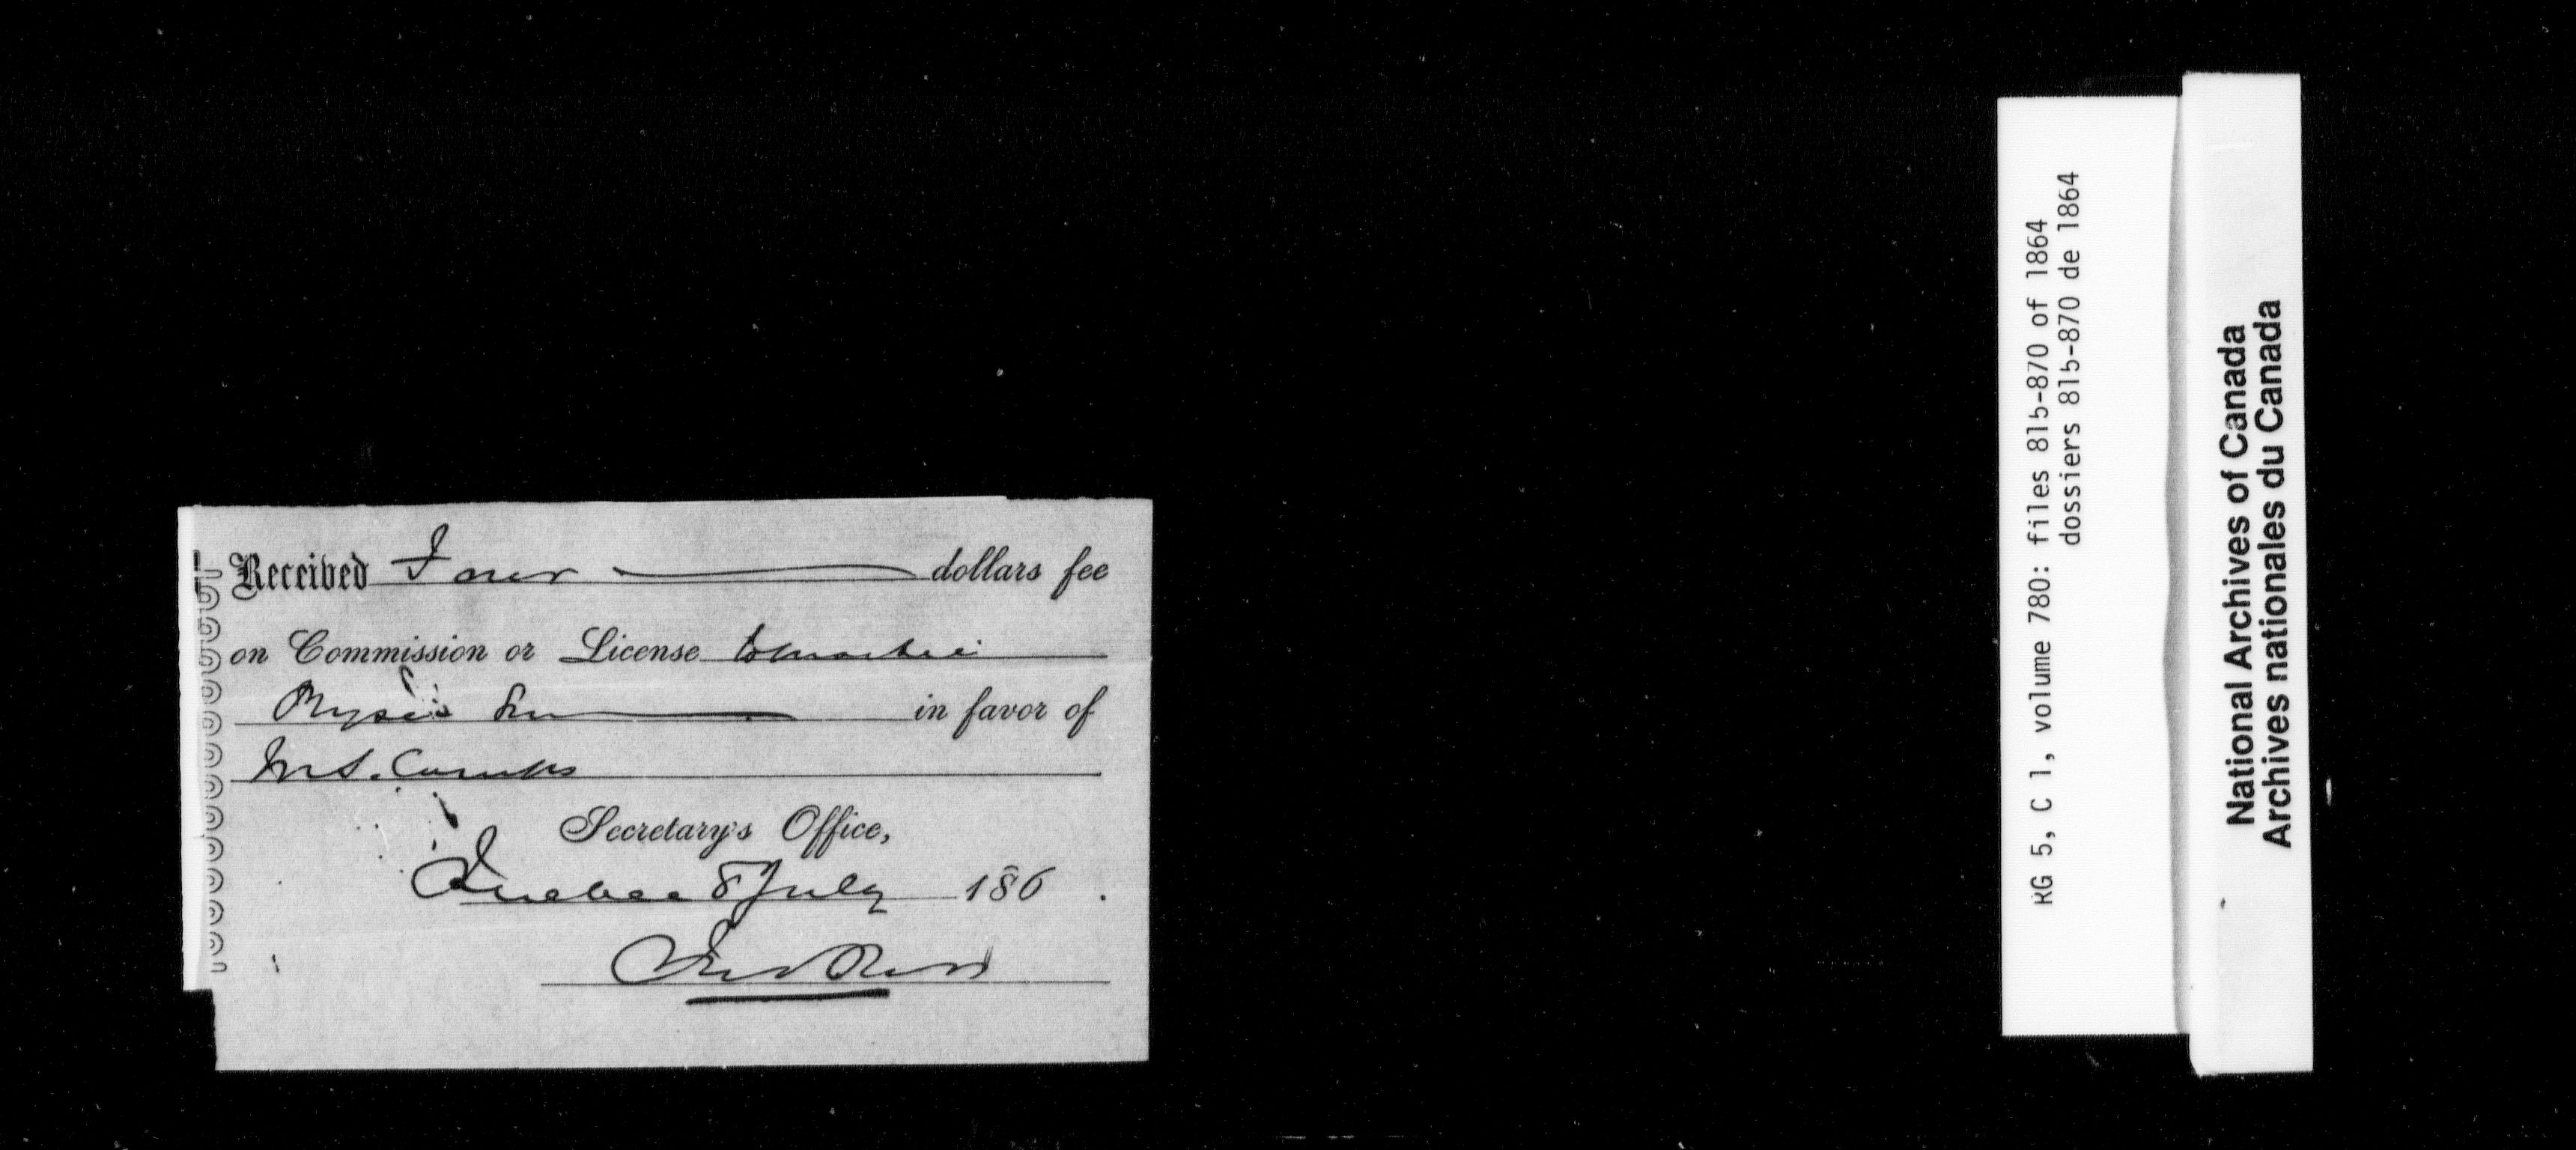 Received Four dollars fee
on Commission or License to practice
Physic &c in favor of
M S.
Secretary's Office,
Quebec 8 July 186 .
RG 5, C 1, volume 780: files 815-870 of 1864
dossiers 815-870 de 1864
National Archives of Canada
Archives nationales du Canada